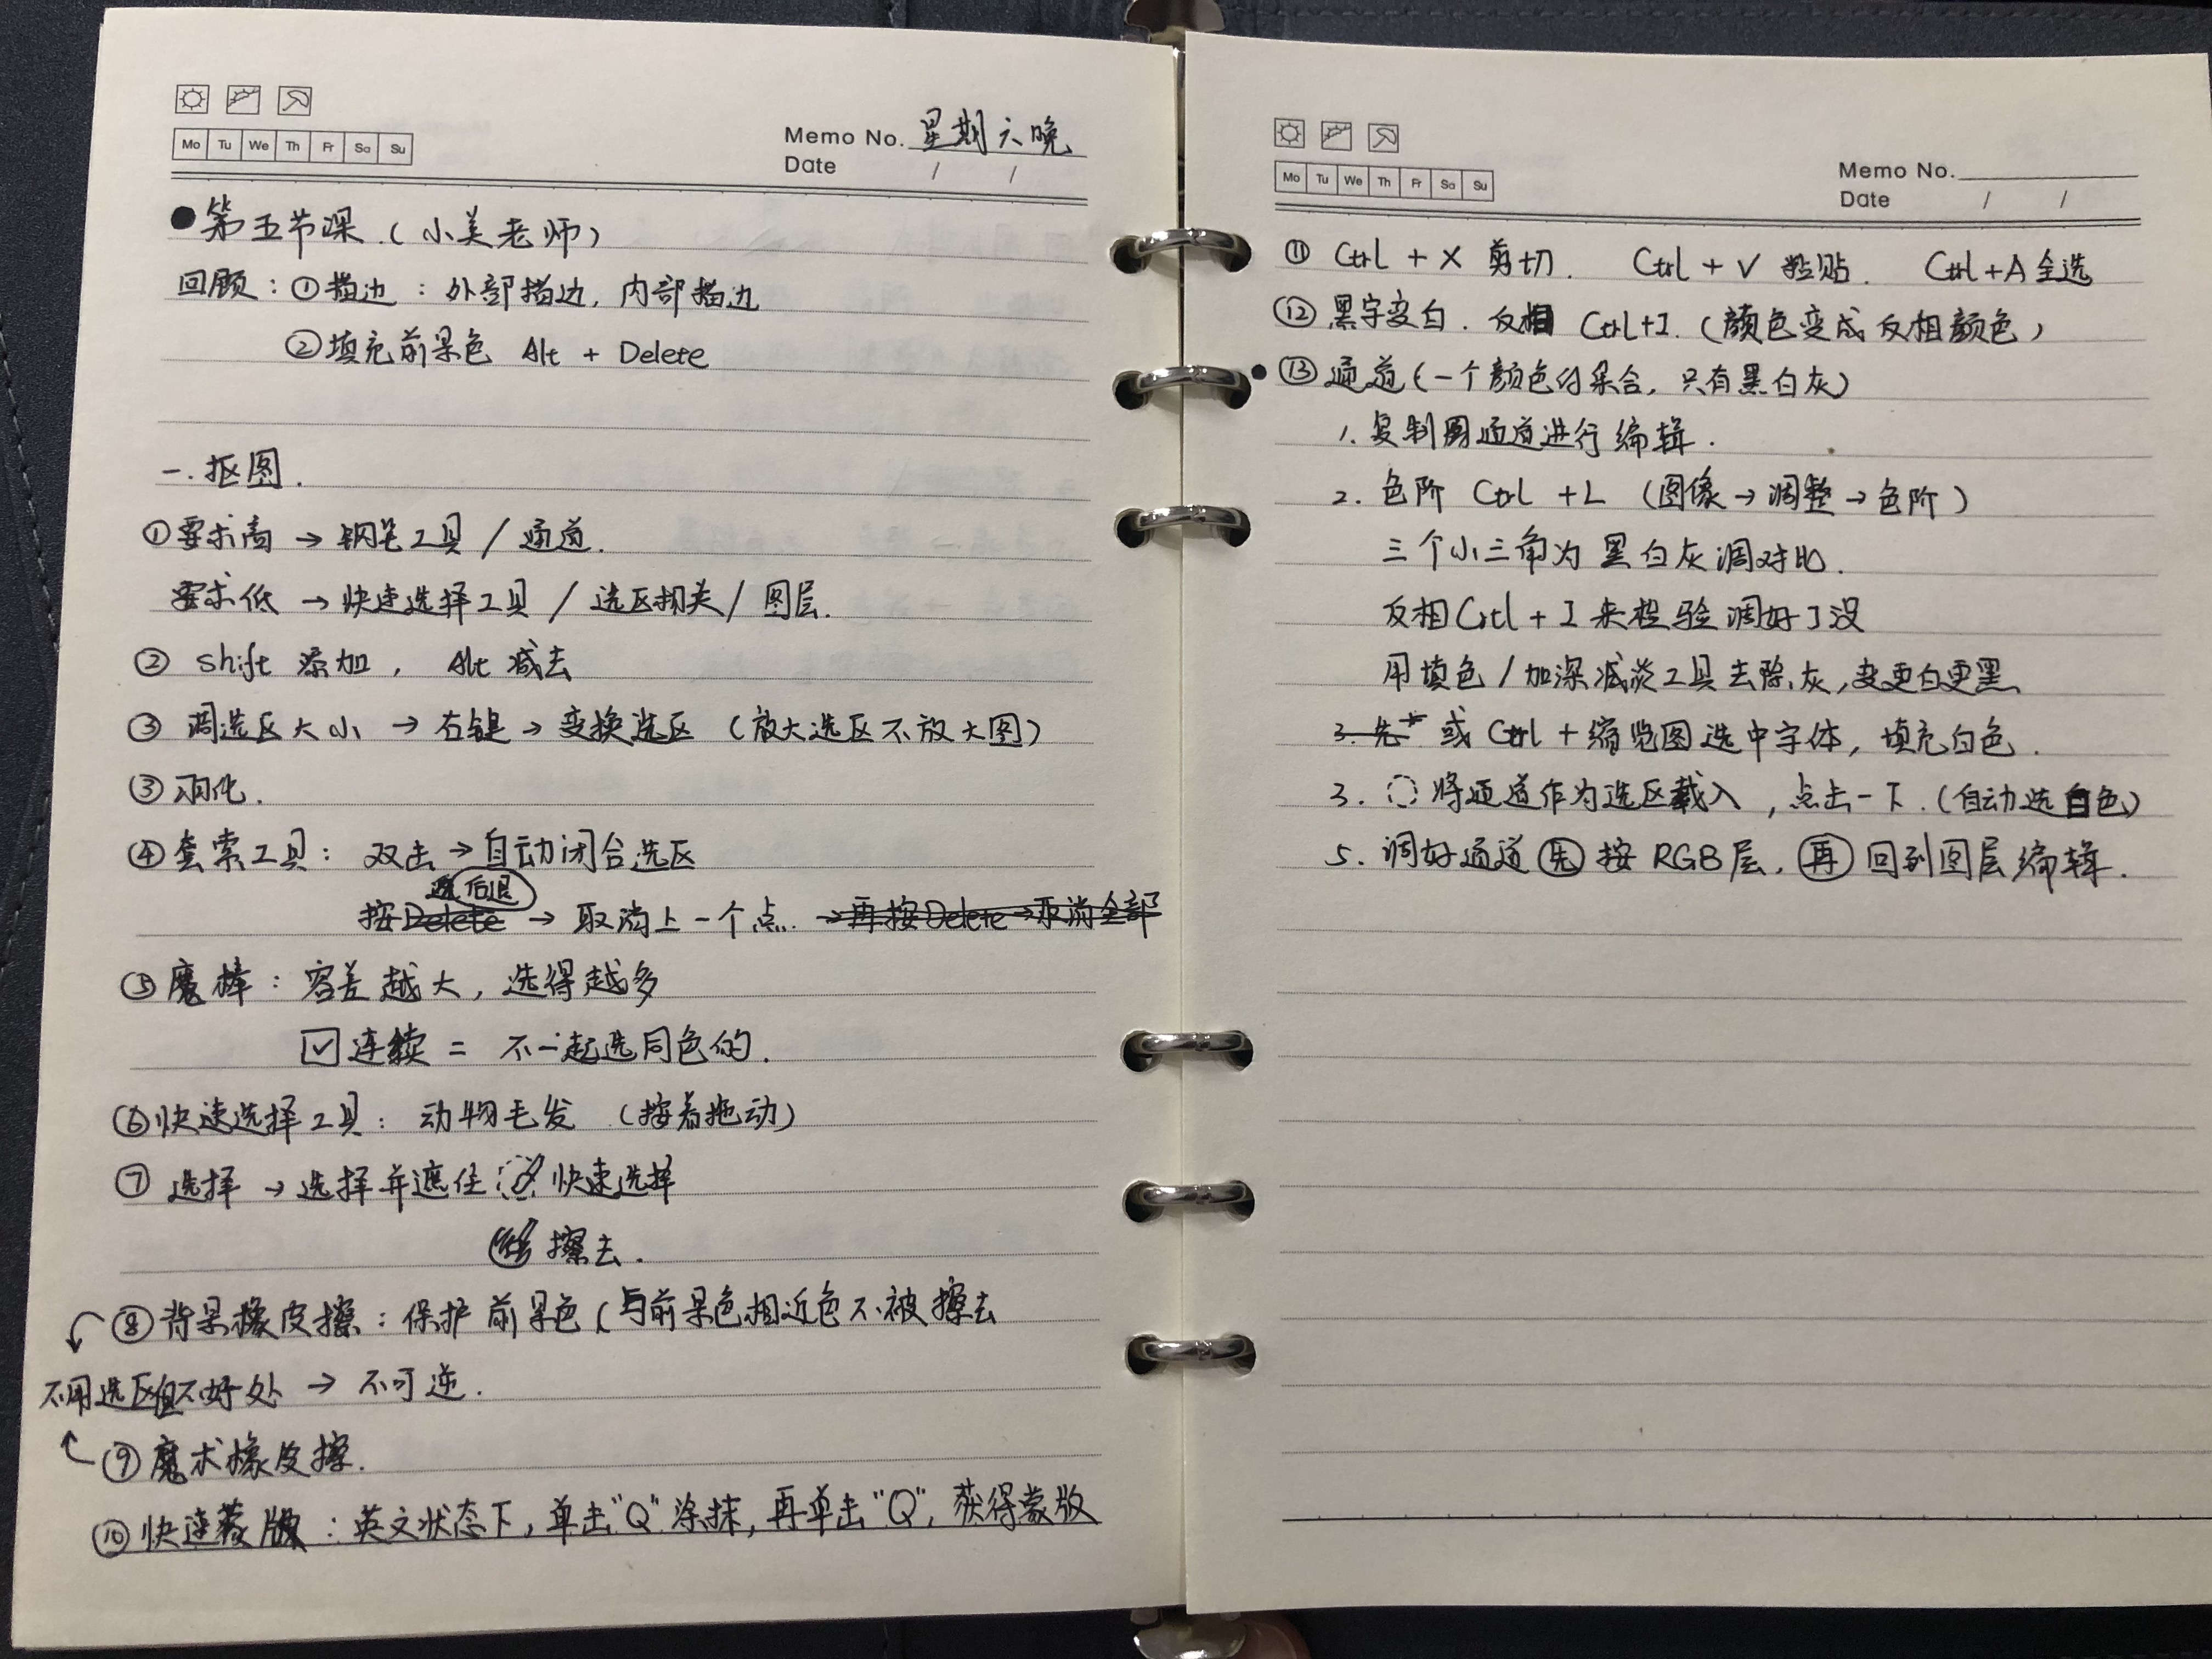 Mo Tu We Th Fr Sa Su
Memo No. 星期六晚
Date / /
●第五节课.(小美老师)
回顾:①描边:外部描边,内部描边
②填充前景色 Alt + Delete
一.抠图.
①要求高→钢笔工具/通道.
要求低→快速选择工具/选区相关/图层.
② Shift 添加, Alt 减去
③ 调选区大小→右键→变换选区(放大选区不放大图)
③羽化.
④套索工具: 双击→自动闭合选区
后退
按Delete→取消上一个点.→再按Delete→取消全部
⑤魔棒:容差越大,选得越多
☑连续= 不一起选同色的.
⑥快速选择工具:动物毛发(按着拖动)
⑦ 选择→选择并遮住 快速选择
擦去.
⑧背景橡皮擦:保护前景色(与前景色相近色不被擦去
不用选区但不好处→不可逆.
⑨魔术橡皮擦.
⑩快速蒙版:英文状态下,单击"Q"涂抹,再单击"Q",获得蒙版
Mo Tu We Th Fr Sa Su
Memo No.
Date / /
⑪ Ctrl + X 剪切. Ctrl + V 粘贴. Ctrl+A全选
⑫黑字变白.反相 Ctrl+I.(颜色变成反相颜色)
●⑬通道(一个颜色的集合,只有黑白灰)
1.复制通道进行编辑.
2.色阶 Ctrl +L (图像→调整→色阶)
三个小三角为黑白灰调对比.
反相Crtl + I 来检验调好了没
用填色/加深减淡工具去除灰,变更白更黑
3.先 或 Ctrl +缩览图选中字体,填充白色.
3. 将通道作为选区载入,点击一下.(自动选白色)
5.调好通道先按RGB层,再回到图层编辑.